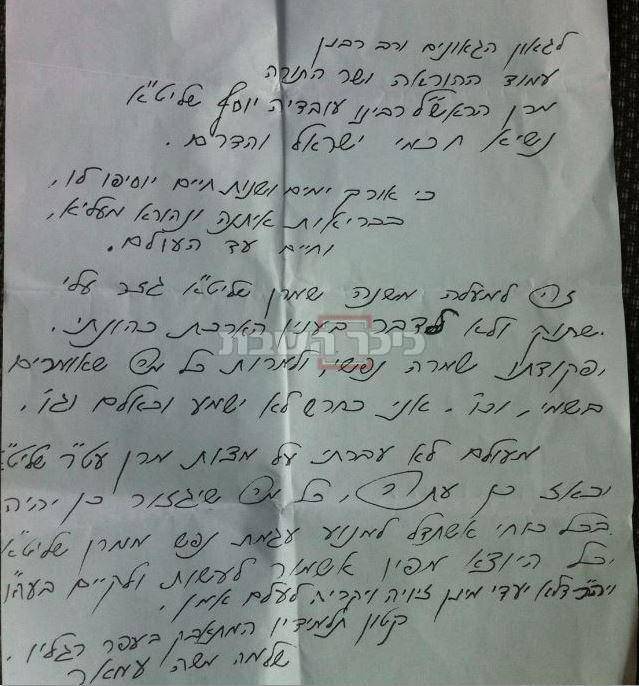 לגאון הגאונים ורב רבנן
עמוד ההוראה ושר התורה
מרן הראש"ל רבינו עובדיה יוסף שליט"א
נשיא חכמי ישראל והדרם.
כי אורך ימים ושנות חיים יוסיפו לו,
בבריאות איתנה ונהורא מעליא,
וחיים עד העולם.
זה למעלה משנה שמרן שליט"א גזר עלי
שתוק ולא לדבר בענין הארכת כהונתי.
כיכר השבת
ופקודתו שמרה נפשי, ולמרות כל מה שאומרים
בשמי, וכו'. אני כחרש לא ישמע וכאלם וגו'.
מעולם לא עברתי על מצות מרן עט"ר שליט"א
וכאז כן עתה, כל מה שיגזור כן יהיה
בכל כוחי אשתדל למנוע עגמת נפש ממרן שליט"א
וכל היוצא מפיו אשמור לעשות ולקיים בעה"ו
דלא יעדי מינן זיויה ויקריה לעלם אמן.
קטון תלמידיו המתאבק בעפר רגליו.
שלמה משה עמאר